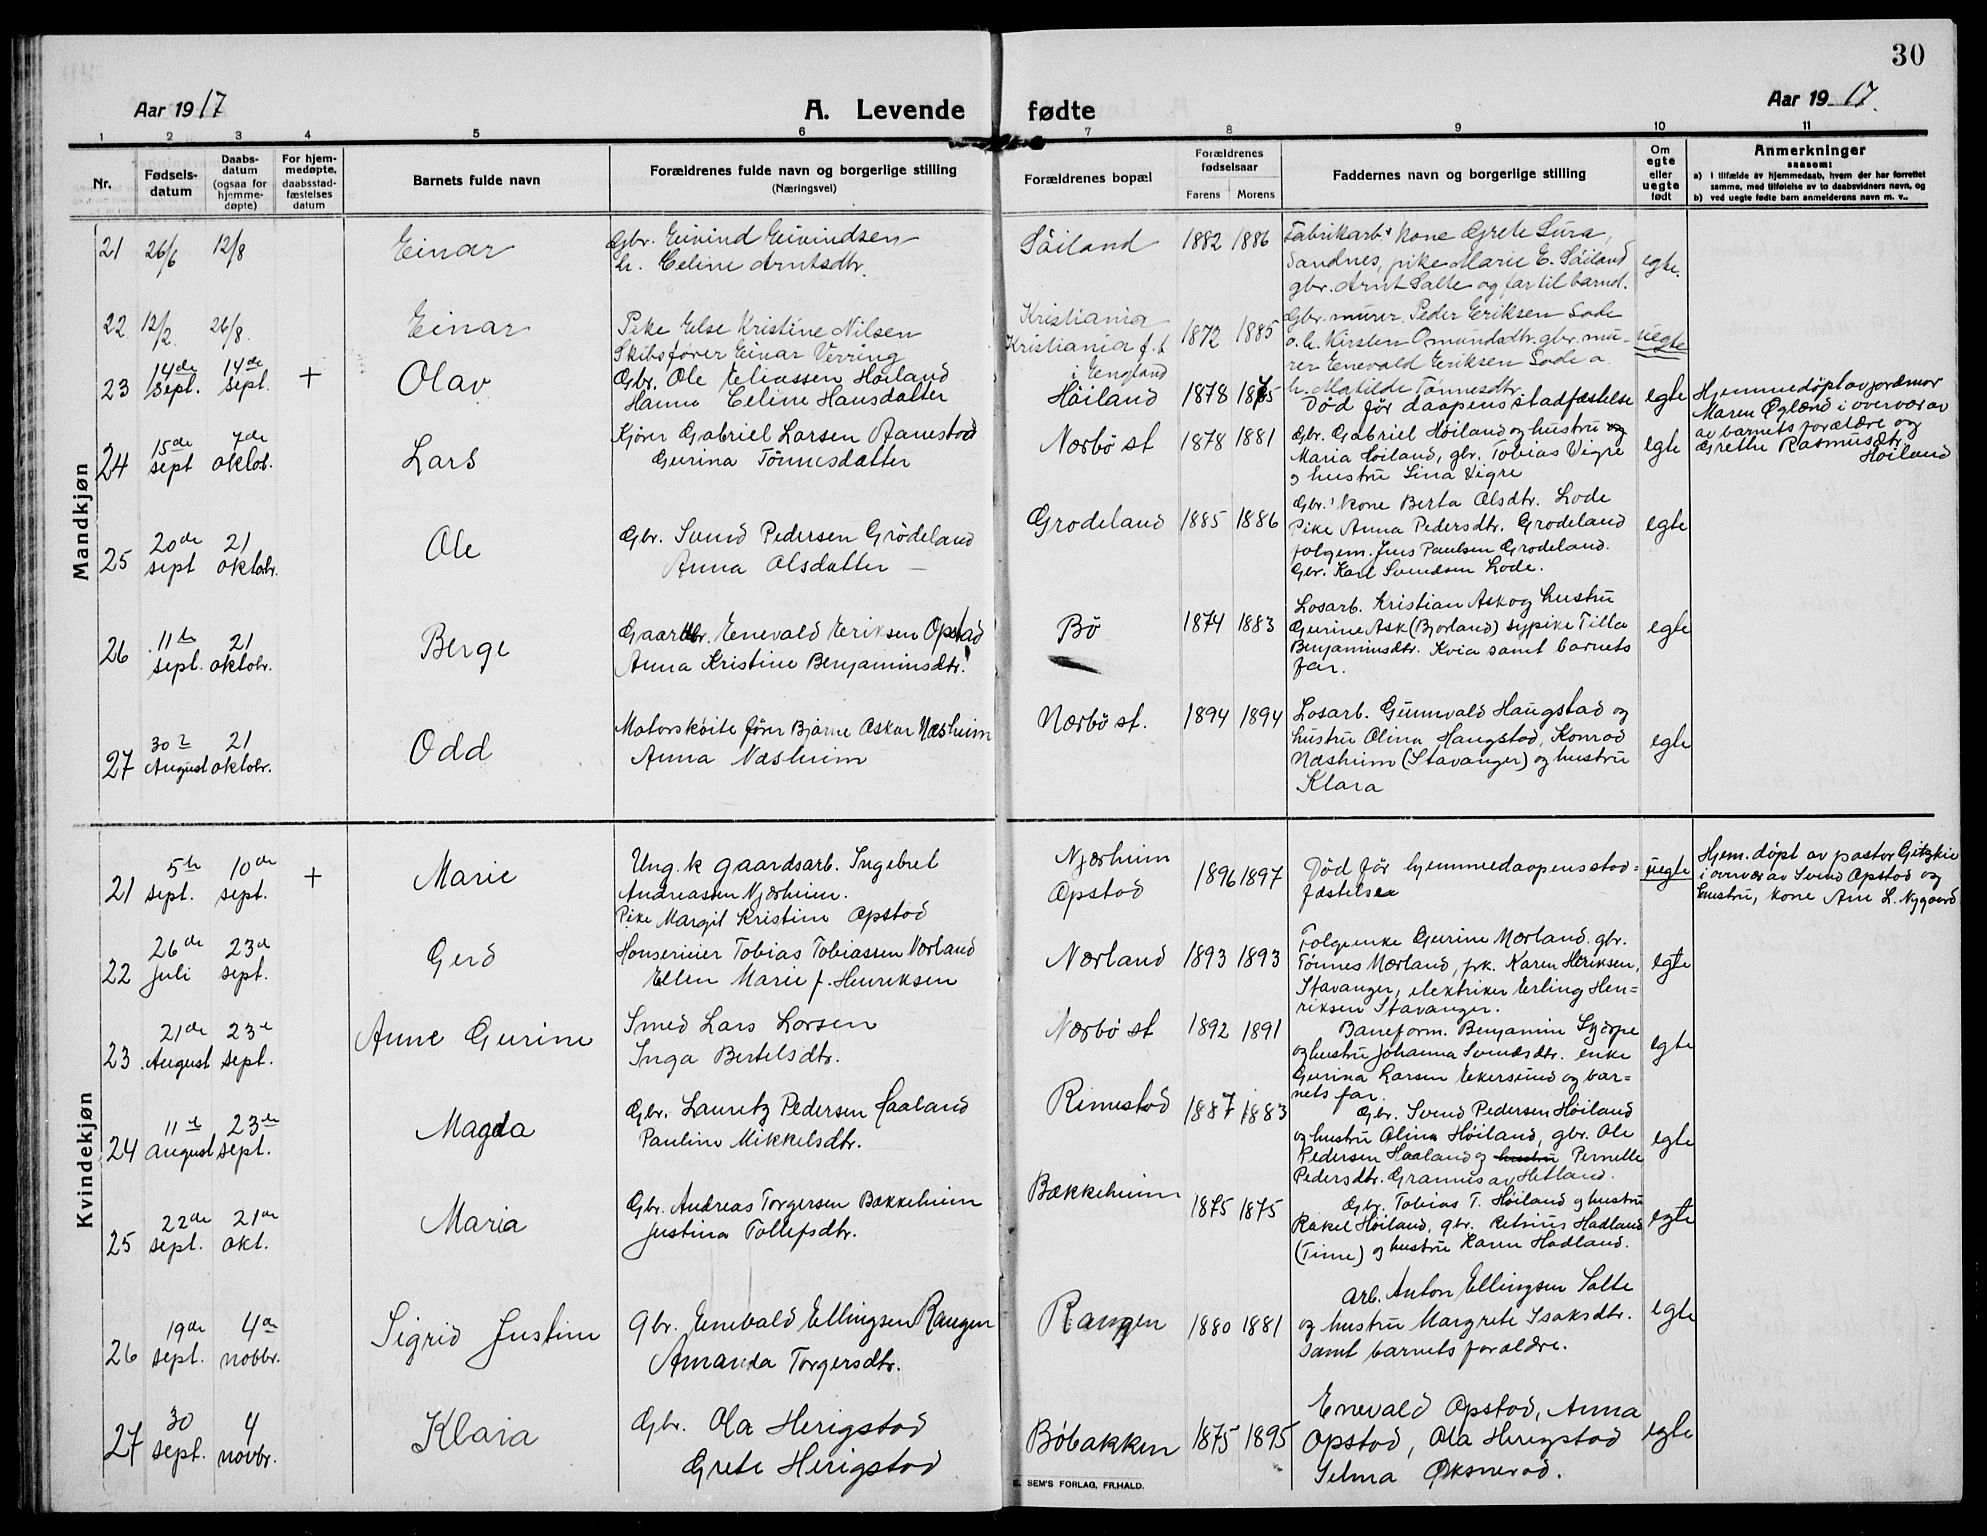 30
Aar 1917 A. Levende fødte Aar 1917.
1 2 3 4 5 6 7 8 9 10 11
Nr.
Fødsels-
datum
Daabs-
datum
(ogsaa for
hjemme-
døpte)
For hjem-
medøpte,
daabsstad-
fæstelses
datum
Barnets fulde navn
Forældrenes fulde navn og borgerlige stilling
(Næringsvei)
Forældrenes bopæl
Forældrenes
fødselsaar
Farens Morens
Faddernes navn og borgerlige stilling
Om
egte
eller
uegte
født
Anmerkninger
saasom:
a) i tilfælde av hjemmedaab, hvem der har forrettet
samme, med tilføielse av to daabsvidners navn, og
b) ved uegte fødte barn anmelderens navn m. v..
Mandkjøn
21 26/6 12/8 Einar
Gbr. Eivind Eivindsen
h. Celine Arntsdtr.
Søiland 1882 1886
Fabrikarb.s kone Grete Lura,
Sandnes, pike Marie E. Søiland
gbr. Arnt Salte og far til barnet.
egte.
22 12/2 26/8 Einar
Pike Else Kristine Nilsen
Skibsfører Einar Verring
Kristiania
Kristiania f. t
i England
1872 1885
Gbr. murer Peder Eriksen Lode
o. h. Kirsten Omundsdtr. gbr. mu-
rer Enevald Eriksen Lode o.
h. Matilde Tønnesdtr.
uegte
23 14de sept. 14de sept. + Olav
Gbr. Ole Eliassen Høiland
Hanne Celine Hansdatter
Høiland 1878 1875
Død før daapens stadfæstelse
egte
Hjemmedøpt av jordmor
Maren Øglænd i overvær av
av barnets forældre og
Grethe Rasmusdtr.
Høiland
24 15de sept 7de oktob. Lars
Kjører Gabriel Larsen Aanestad
Gurina Tønnesdatter
Nærbø st 1878 1881
Gbr. Gabriel Høiland og hustru og
Maria Høiland, gbr. Tobias Vigre
og hustru Lina Vigre
egte
25 20de sept 21 oktobr. Ole
Gbr. Svend Pedersen Grødeland
Anna Olsdatter —
Grødeland 1885 1886
Gbr.s kone Berta Olsdtr. Lode
Pike Anna Pedersdtr. Grødeland
folgem. Jens Paulsen Grødeland.
Gbr. Karl Svendsen Lode.
egte
26 11te sept. 21 oktobr. Berge
Gaardbr. Enevald Eriksen Opstad
Anna Kristine Benjaminsdtr.
Bø 1874 1883
Losarb. Kristian Ask og hustru
Gurine Ask (Bjorland) sypike Tilla
Benjaminsdtr. Kvia samt barnets
far.
egte
27 30te August 21 oktobr. Odd
Motorskøite fører Bjarne Oskar Næsheim
Anna Næsheim
Nærbø st. 1894 1894
Losarb. Gunnvald Haugstad og
hustru Olina Haugstad, Konrad
Næsheim (Stavanger) og hustru
Klara
egte
Kvindekjøn
21 5te sept. 10de sept. + Marie
Ung.k gaardsarb. Ingebret
Andreassen Njærheim.
Pike Margit Kristine Opstad
Njærheim
Opstad
1896 1897
Død før hjemmedaapens stad=
fæstelse
uegte
Hjem. døpt av pastor Gitzkie
i overvær av Svend Opstad og
hustru, kone Ane L. Nygaard
22 26de juli 23d sept. Gerd
Honserieier Tobias Tobiassen Nærland
Ellen Marie f. Henriksen
Nærland 1893 1893
Folgeenke Gurine Nærland. gbr.
Tønnes Nærland, frk. Karen Heriksen,
Stavanger, elektriker Erling Hen=
riksen Stavanger.
egte
23 21de August 23de sept. Anne Gurine
Smed Lars Larsen
Inga Bertelsdtr.
Nærbø st 1892 1891
Baneform. Benjamin Skjerpe
og hustru Johanna Svendsdtr. enke
Gurina Larsen Ekersund og bar=
nets far.
egte
24 11te august 23de sept. Magda
Gbr. Lauretz Pedersen Haaland
Pauline Mikkelsdtr.
Rimestad 1887 1883
Gbr. Svend Pedersen Høiland
og hustru Olina Høiland, gbr. Ole
Pedersen Haaland og hustru Pernelle
Pedersdtr. Grannes av Hetland.
egte
25 22de sept. 21de okt. Maria
Gbr. Andreas Torgersen Bækkeheim
Justina Tollefsdtr.
Bækkeheim 1875 1875
Gbr. Tobias T. Høiland og hustru
Rakel Høiland, gbr. Retnius Hadland
(Time) og hustru Karen Hadland.
egte
26 19de sept. 4de nobbr. Sigrid Justine
gbr. Enevald Ellingsen Rangen
Amanda Torgersdtr.
Rangen 1880 1881
arb. Anton Ellingsen Salte
og hustru Margrete Isaksdtr.
samt barnets forældre.
egte
27 30 sept. 4 novbr. Klara
Gbr. Ola Herigstad
Grete Herigstad
Bøbakken 1875 1895
Enevald Opstad, Anna
Opstad, Ola Herigstad
Selma Øksnevad.
egte
E. SEM'S FORLAG, FR.HALD.